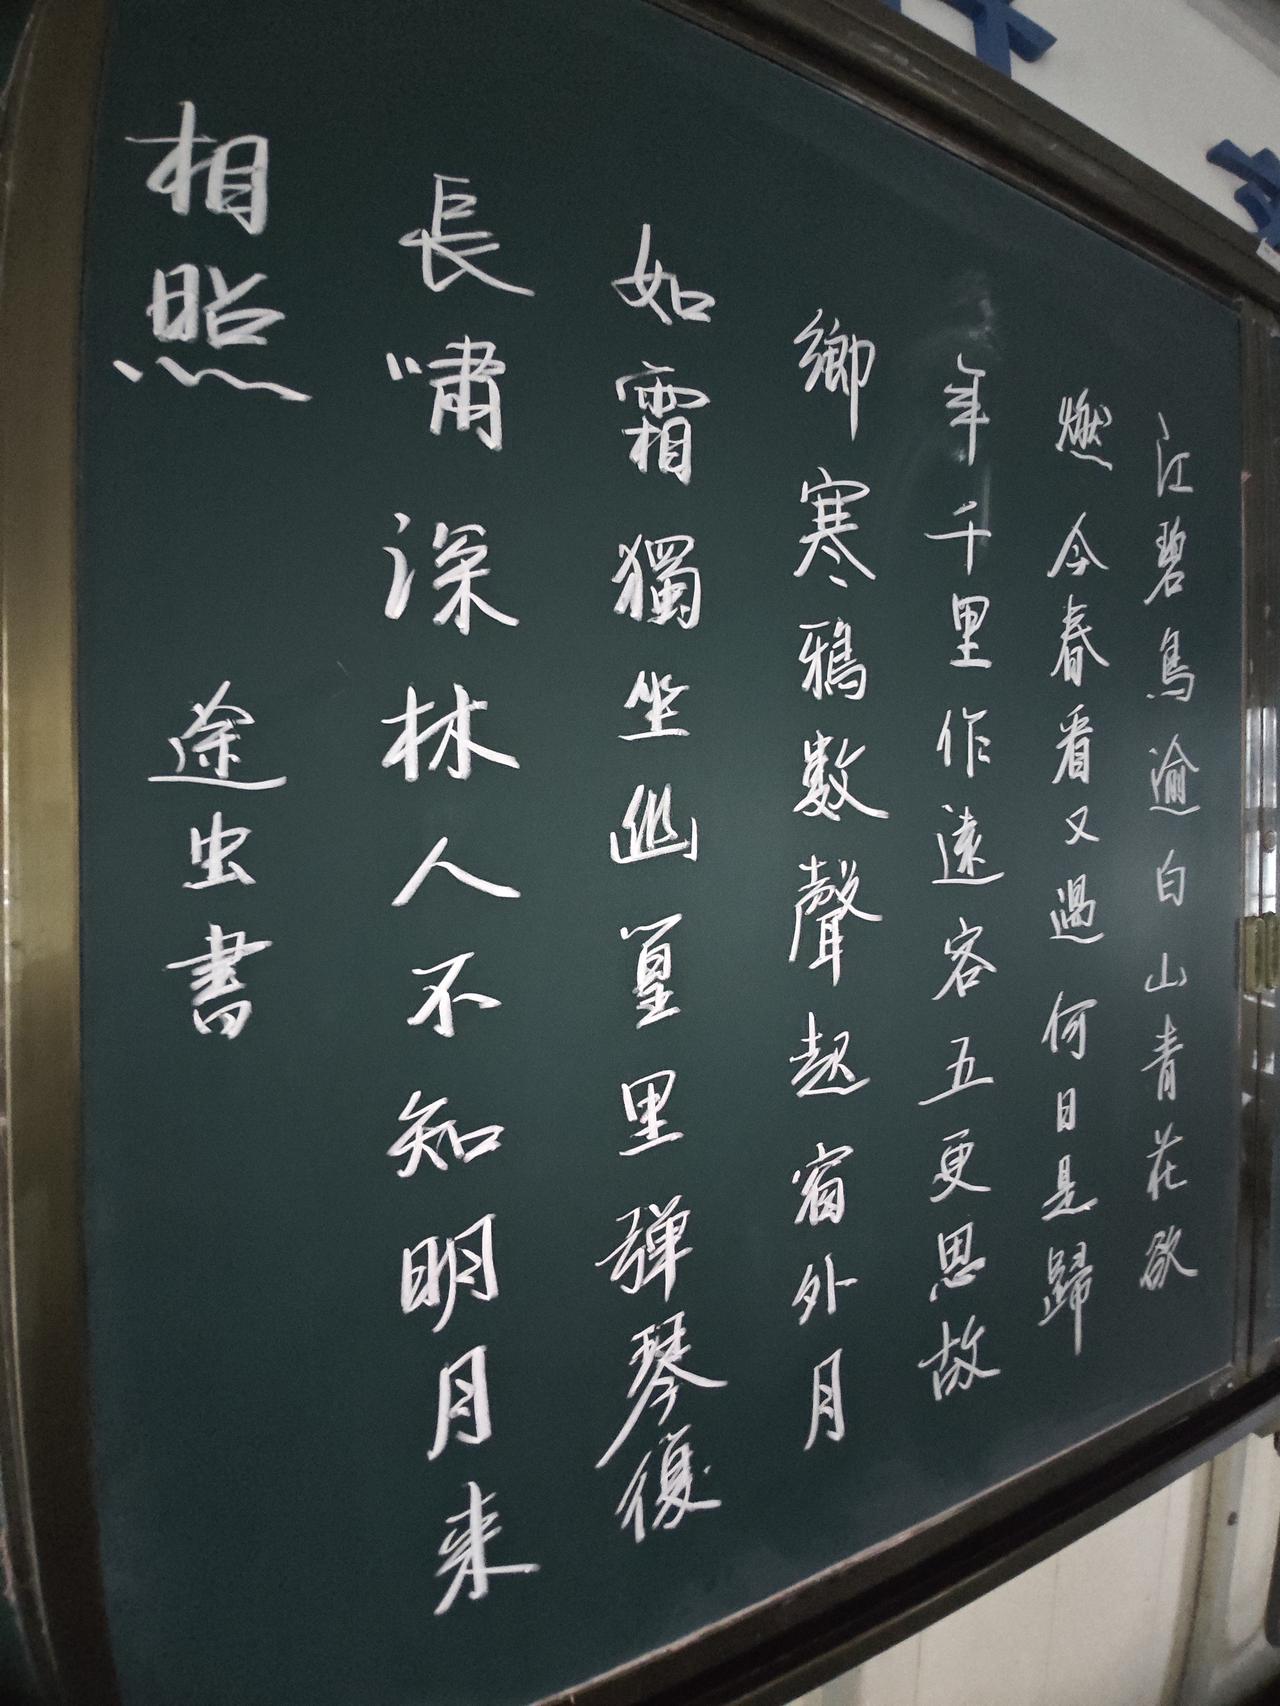 江碧鳥逾白山青花欲
燃今春看又過何日是歸
年千里作遠客五更思故
鄉寒鴉數聲起窗外月
如霜獨坐幽篁里彈琴復
長嘯深林人不知明月来
相照
途虫書